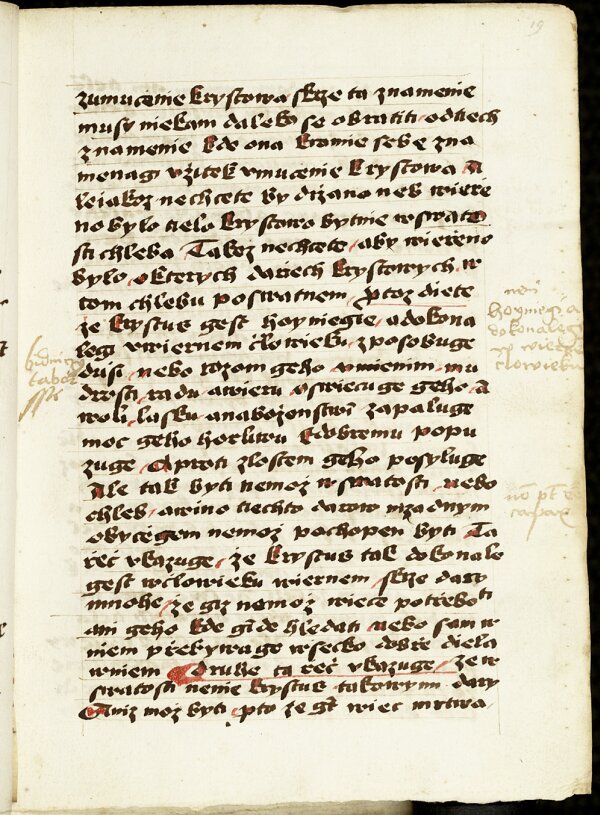 19
zumucenie krystowa skrze ta znamenie
musy niekam daleko se obratiti odtiech
znamenie kde ona kromie sebe zna
menagi vzitek vmucenie krystowa A
leiakoz nechcete by dizano neb wiere
no bylo tielo krystowo bytnie wswato
sti chleba Takez nechcete aby wiereno
bylo okterych dariech krystowych w
tom chlebu poswatnem ptoz diete
ze krystus gest hoyniegie adokona
legi vwiernem clowieku zposobuge
dusi nebo rozom geho vmienim mu
drosti radu awieru oswiecuge geho A
woli lasku anabozenstwi zapaluge
moc geho horliwu kdobremu popu
zuge Aproti zlostem geho posyluge
Ale tak byti nemoz wswatosti nebo
chleb awino tiechto darow nizadnym
obycegem nemoz pochopen byti Ta
rec vkazuge ze krystus tak dokonale
gest wclowieku wiernem skrze dary
mnohe ze giz nemoz wiece potreboti
ani geho kde gide hledati nebo sam w
niem prebywage wsecko dobre diela
wniem Druhe ta rec vkazuge ze w
swatosti nenie krystus takowymi dary
Aniz moz byti pto ze gt wiec mrtwa
hoyniegi a
dokonalegi
clowieku